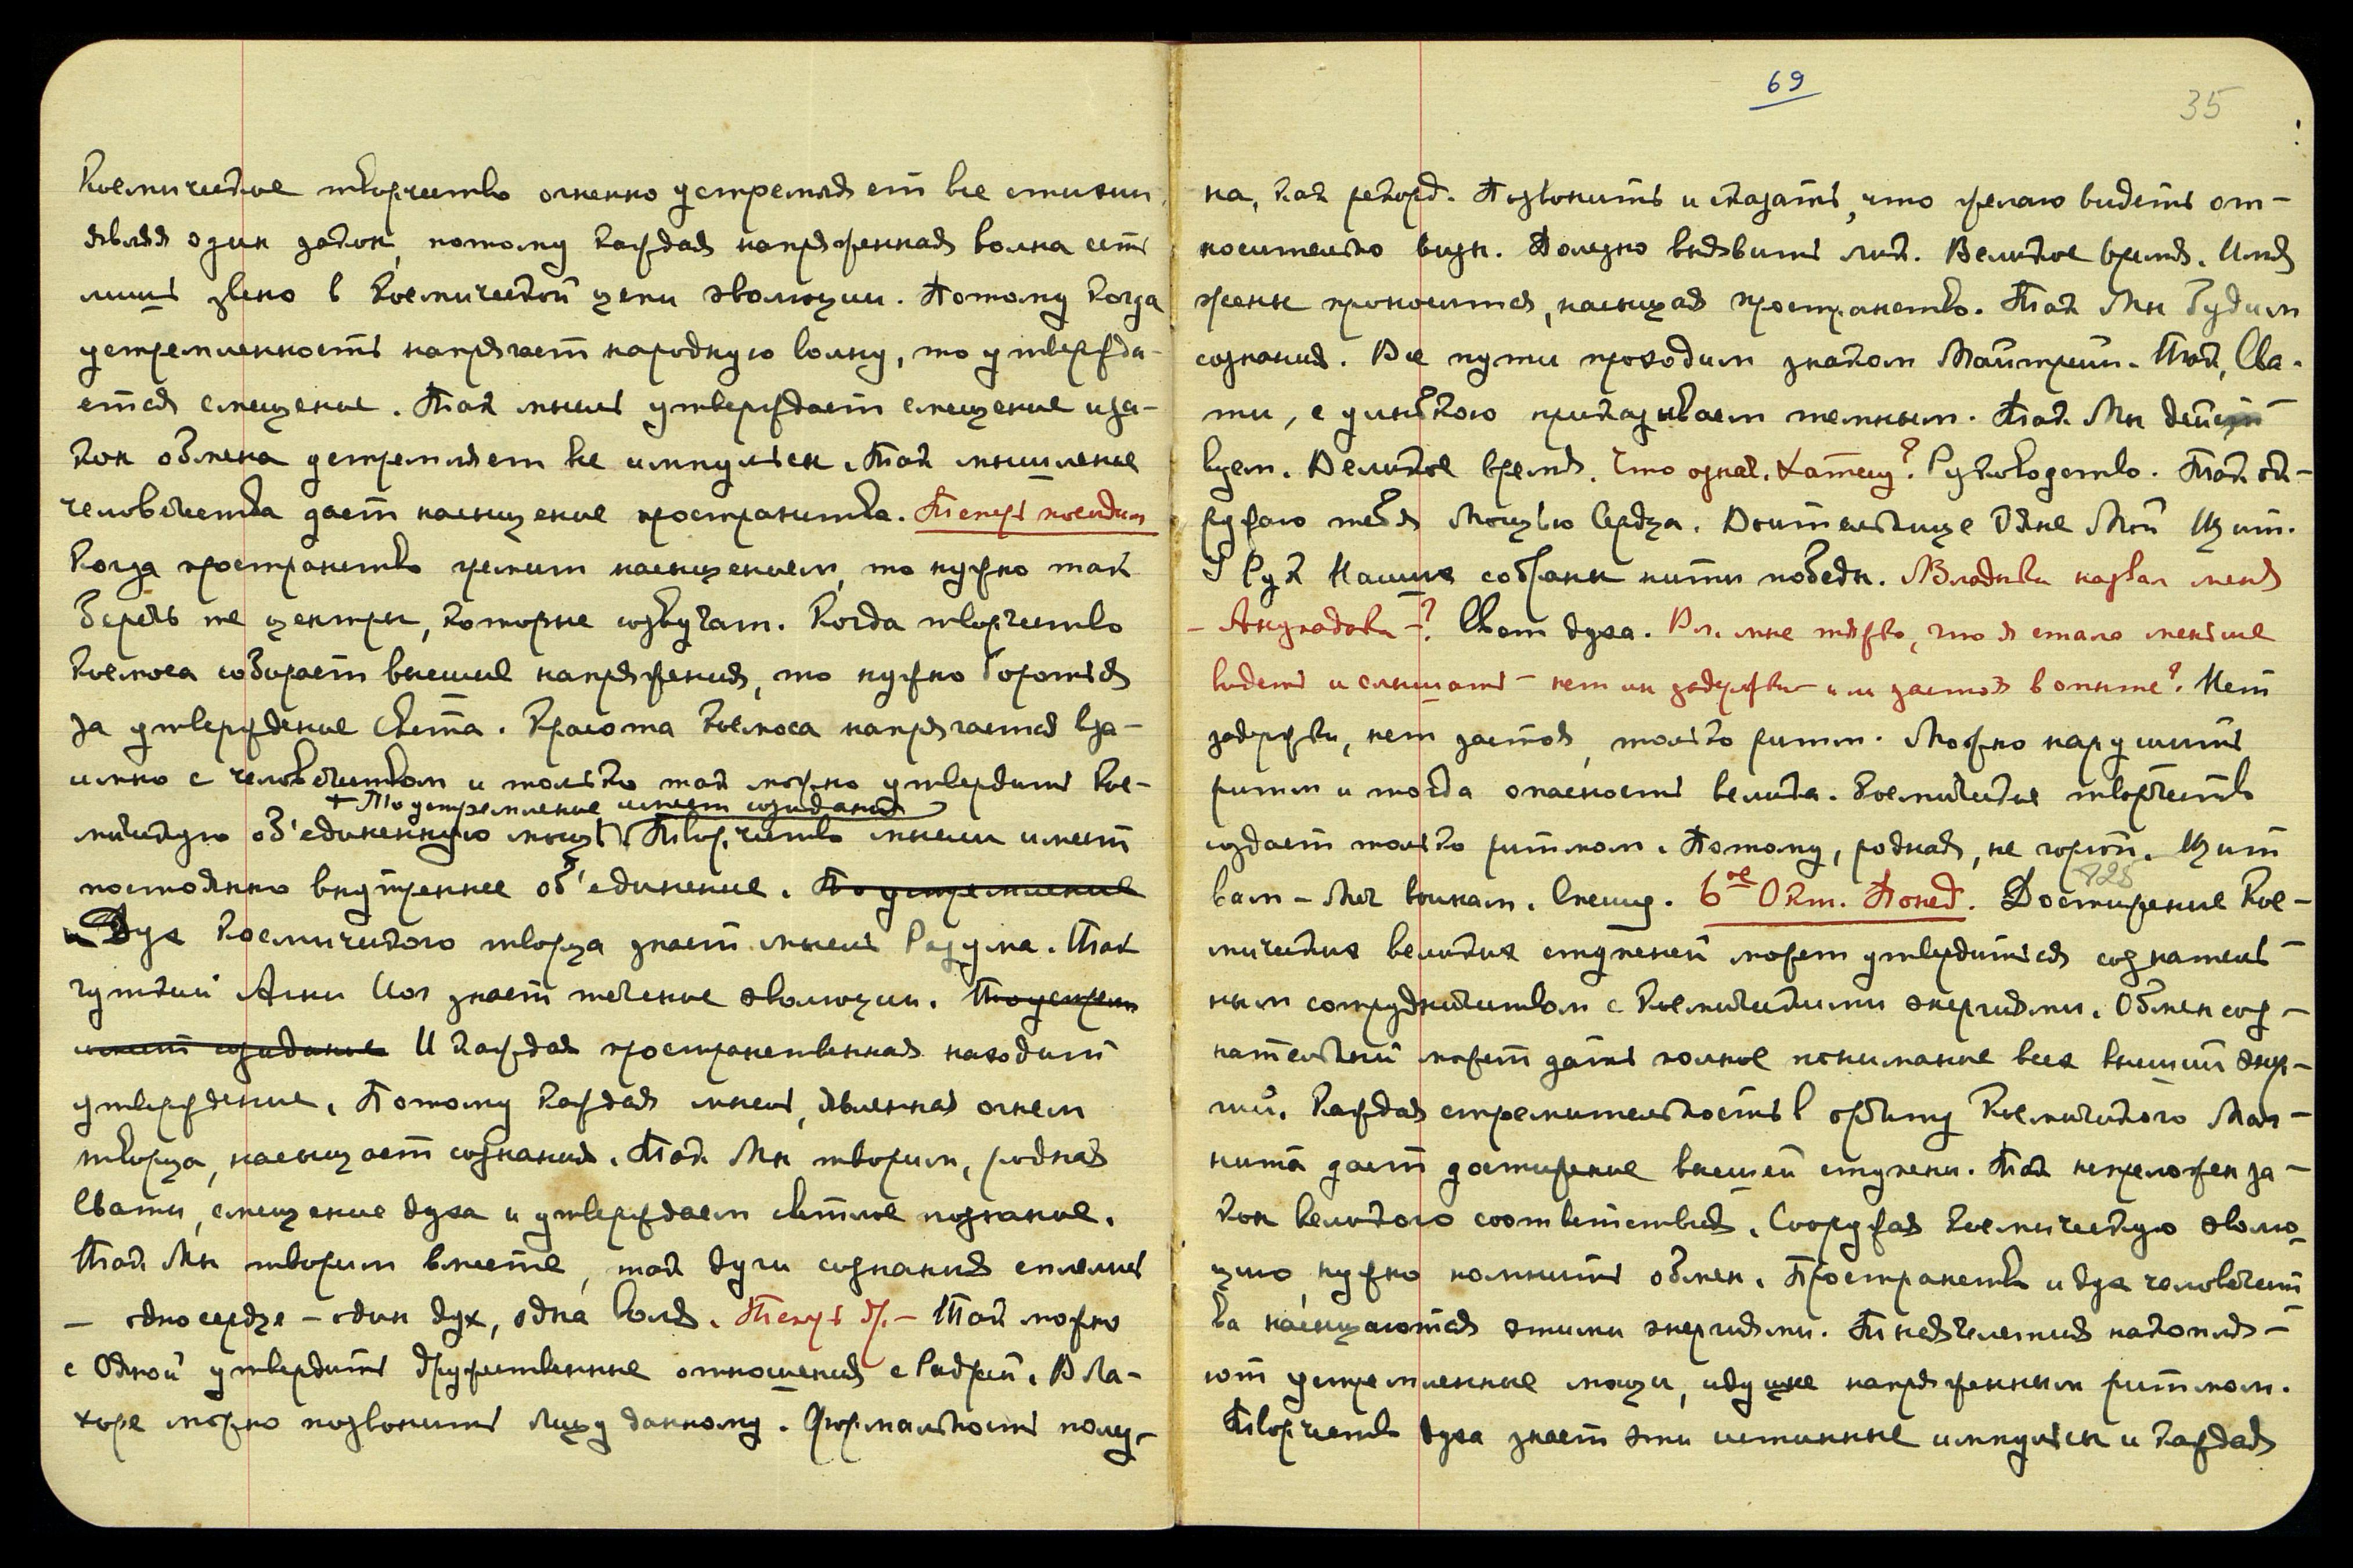 Космическое творчество огненно устремляет все стихии,
являя один закон, потому каждая напряженная волна есть
лишь звено в Космической цепи эволюции. Потому когда
устремленность напрягает народную волну, то утвержда-
ется смещение. Так мысль утверждает смещение и за-
кон обмена устремляет все импульсы. Так мышление
человечества дает насыщение пространства. Теперь последим
Когда пространство гремит насыщением, то нужно так
беречь те центры, которые созвучат. Когда творчество
Космоса собирает высшие напряжения, то нужно бороться
за утверждение Света. Красота Космоса напрягается вза-
имно с человечеством и только так можно утвердить Кос-
+ То устремление имеет созидание
мическую об'единенную мощь. Творчество мысли имеет
постоянно внутреннее об'единение. То устремление
и Дух Космического творца знает мысль Разума. Так
чуткий Агни Йог знает течение эволюции. То устрем
имеет созидание И каждая пространственная находит
утверждение. Потому каждая мысль, явленная огнем
творца, насыщает сознания. Так Мы творим, родная
Свати, смещение духа и утверждаем светлое познание.
Так Мы творим вместе, так духи сознания сплелись
— одно сердце – один дух, одна воля. Теперь др. – Так можно
с Одной утвердить дружественные отношения с
хоре можно позвонить лицу данному. Формальность полу-
69
35
на, как рекорд. Позвонить и сказать, что желаю видеть от-
носительно визы. Полезно выявить лик. Великое время. Имя
жены проносится, насыщая пространство. Так Мы будим
сознания. Все пути проходим знаком Майтрейи. Так, Сва-
ти, с улыбкою приказываем темным. Так Мы дейст
вуем. Великое время. Что означ. ? Руководство. Так ок-
ружаю тебя Мощью Сердца. Воительнице Мой Щит.
У Рук Наших собраны нити победы. Владыки назвал меня
– ? Свет духа. Вл. мне тяжко, что я стала меньше
видеть и слышать – нет ли задержки или застоя в опыте? Нет
задержки, нет застоя, только ритм. Можно нарушить
ритм и тогда опасность велика. Космическое творчество
создает только ритмом. Потому, родная, не горюй. Щит
вам – Меч воинам. Спешу. 6ое Окт. Понед. Достижение Кос-
725
мических великих ступеней может утвердиться сознатель-
ным сотрудничеством с Космическими энергиями. Обмен соз-
нательный может дать полное понимание всех высших энер-
гий. Каждая стремительность в орбиту Космического Маг-
нита дает достижение высшей ступени. Так непреложен за-
кон великого соответствия. Сооружая Космическую эволю-
цию, нужно помнить обмен. Пространство и дух человечест
ва насыщаются этими энергиями. Тысячелетия накопля-
ют устремленные мощи, идущие напряженным ритмом.
Творчество духа знает эти истинные импульсы и каждая